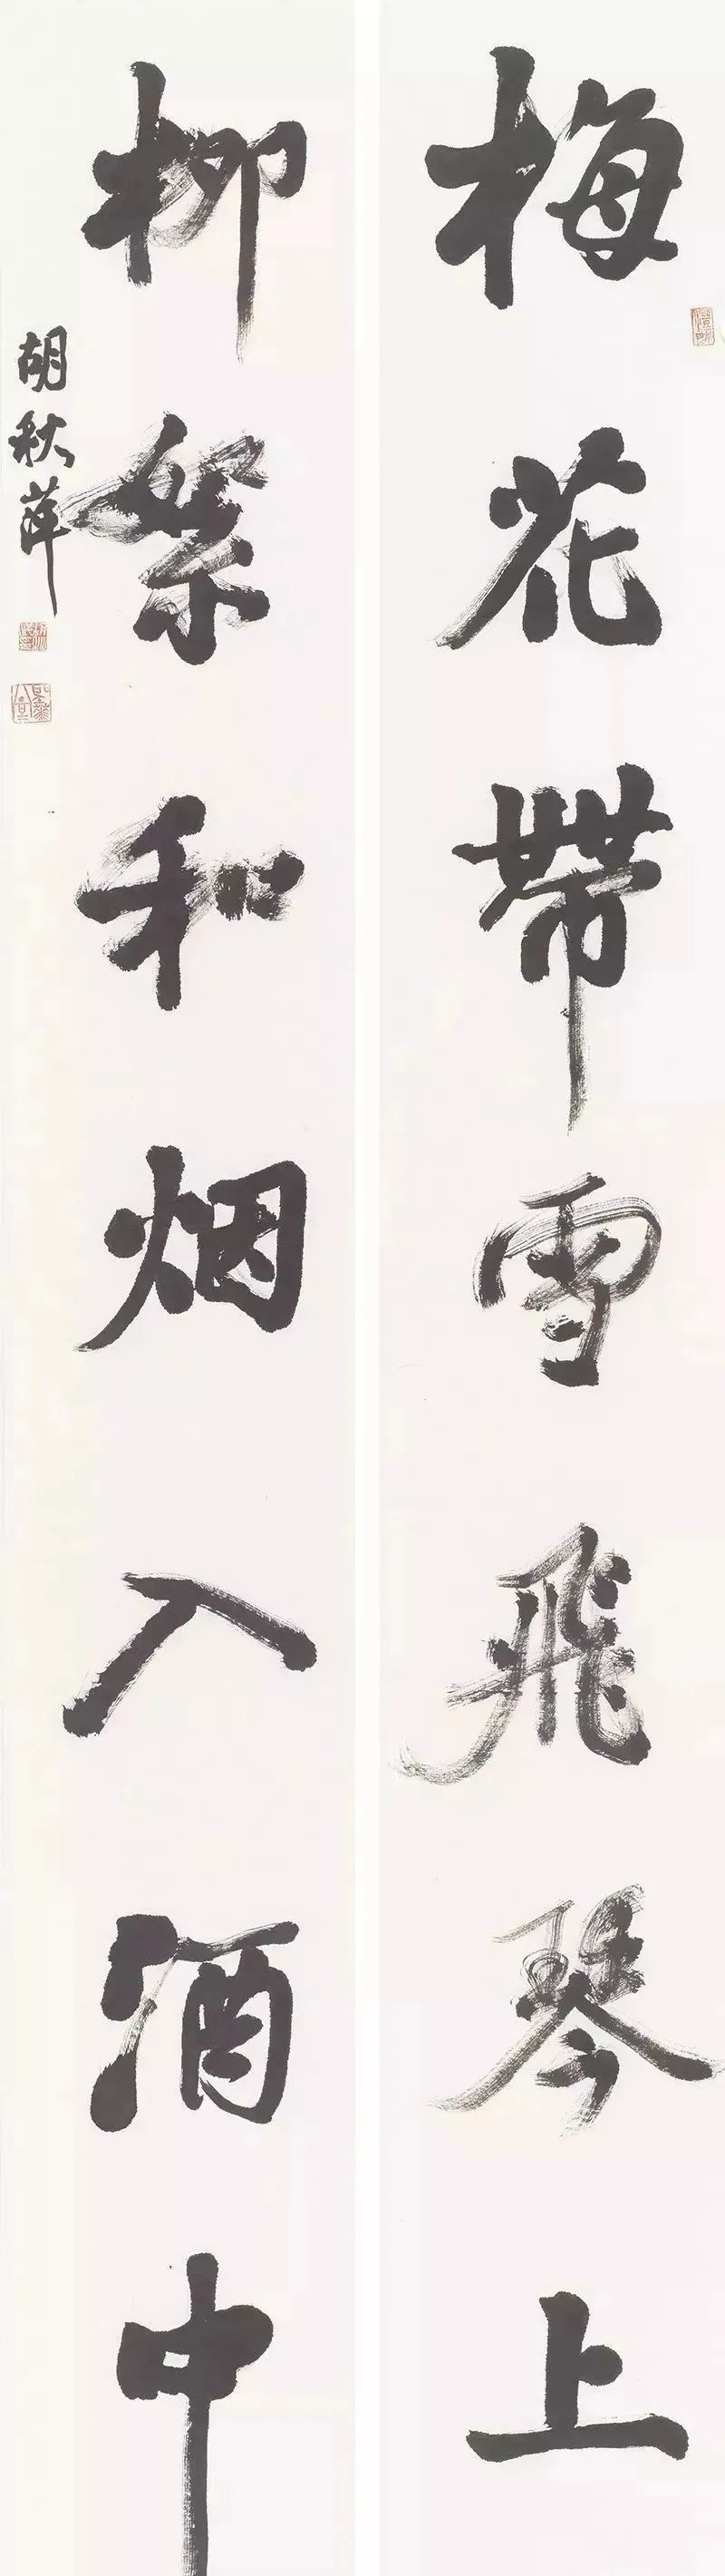 梅花帶雪飛琴上
柳絮和烟入酒中
胡秋萍